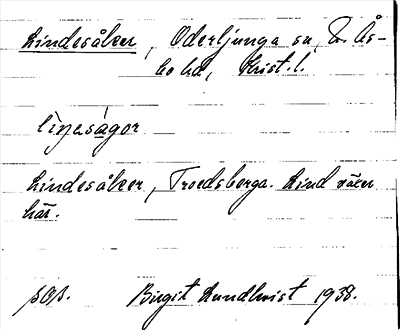 Lindesåker, Oderljunga sn, N. Ås-
bo hd, Krist. l.
liņasågor
Lindesåker, Troedsberga. Lind växer
här.
pop. Birgit Lundkvist 1938.